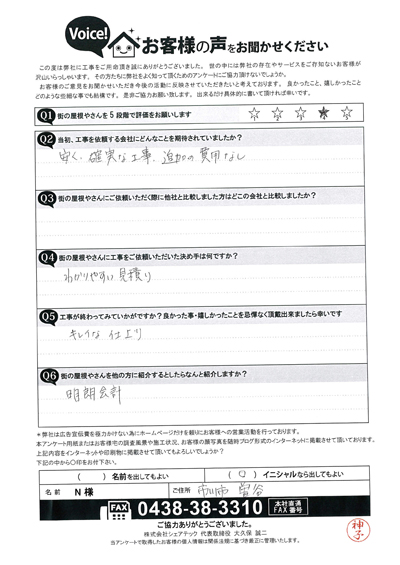 Voice!
お客様の声をお聞かせください
この度は弊社に工事をご用命頂き誠にありがとうございました。世の中には弊社の存在やサービスをご存知ないお客様が
沢山いらっしゃいます。その方たちに弊社をよく知って頂くためのアンケートにご協力頂けないでしょうか。
お客様のご意見をお聞かせいただき今後の活動に反映させていただきたいと考えております。良かったこと、嬉しかったこと
どのような些細な事でも結構です。是非ご協力お願い致します。出来るだけ具体的に書いて頂ければ幸いです。
Q1 街の屋根やさんを5段階で評価をお願いします
☆ ☆ ☆ ★ ☆
Q2 当初、工事を依頼する会社にどんなことを期待されていましたか?
安く、確実な工事、追加の費用なし
Q3 街の屋根やさんにご依頼いただく際に他社と比較しました方はどこの会社と比較しましたか?
Q4 街の屋根やさんに工事をご依頼いただいた決め手は何ですか?
わかりやすい見積り
Q5 工事が終わってみていかがですか?良かった事・嬉しかったことを忌憚なく頂戴出来ましたら幸いです
キレイな仕上り
Q6 街の屋根やさんを他の方に紹介するとしたらなんと紹介しますか?
明朗会計
*弊社は広告宣伝費を極力かけない為にホームページだけを頼りにお客様への営業活動を行っております。
本アンケート用紙またはお客様宅の調査風景や施工状況、お客様の顔写真を随時ブログ形式のインターネットに掲載させて頂いております。
上記内容をインターネットや印刷物に掲載させて頂いてもよろしいでしょうか?
下記の中から○印をお付下さい。
( ) 名前を出してもよい (○) イニシャルなら出してもよい
名前 N様 ご住所 市川市
FAX 0438-38-3310 本社直通FAX番号
ご協力ありがとうございました。
株式会社シェアテック 代表取締役 大久保 誠二
当アンケートで取得したお客様の個人情報は関係法規に基づき厳正に管理いたします。
神子